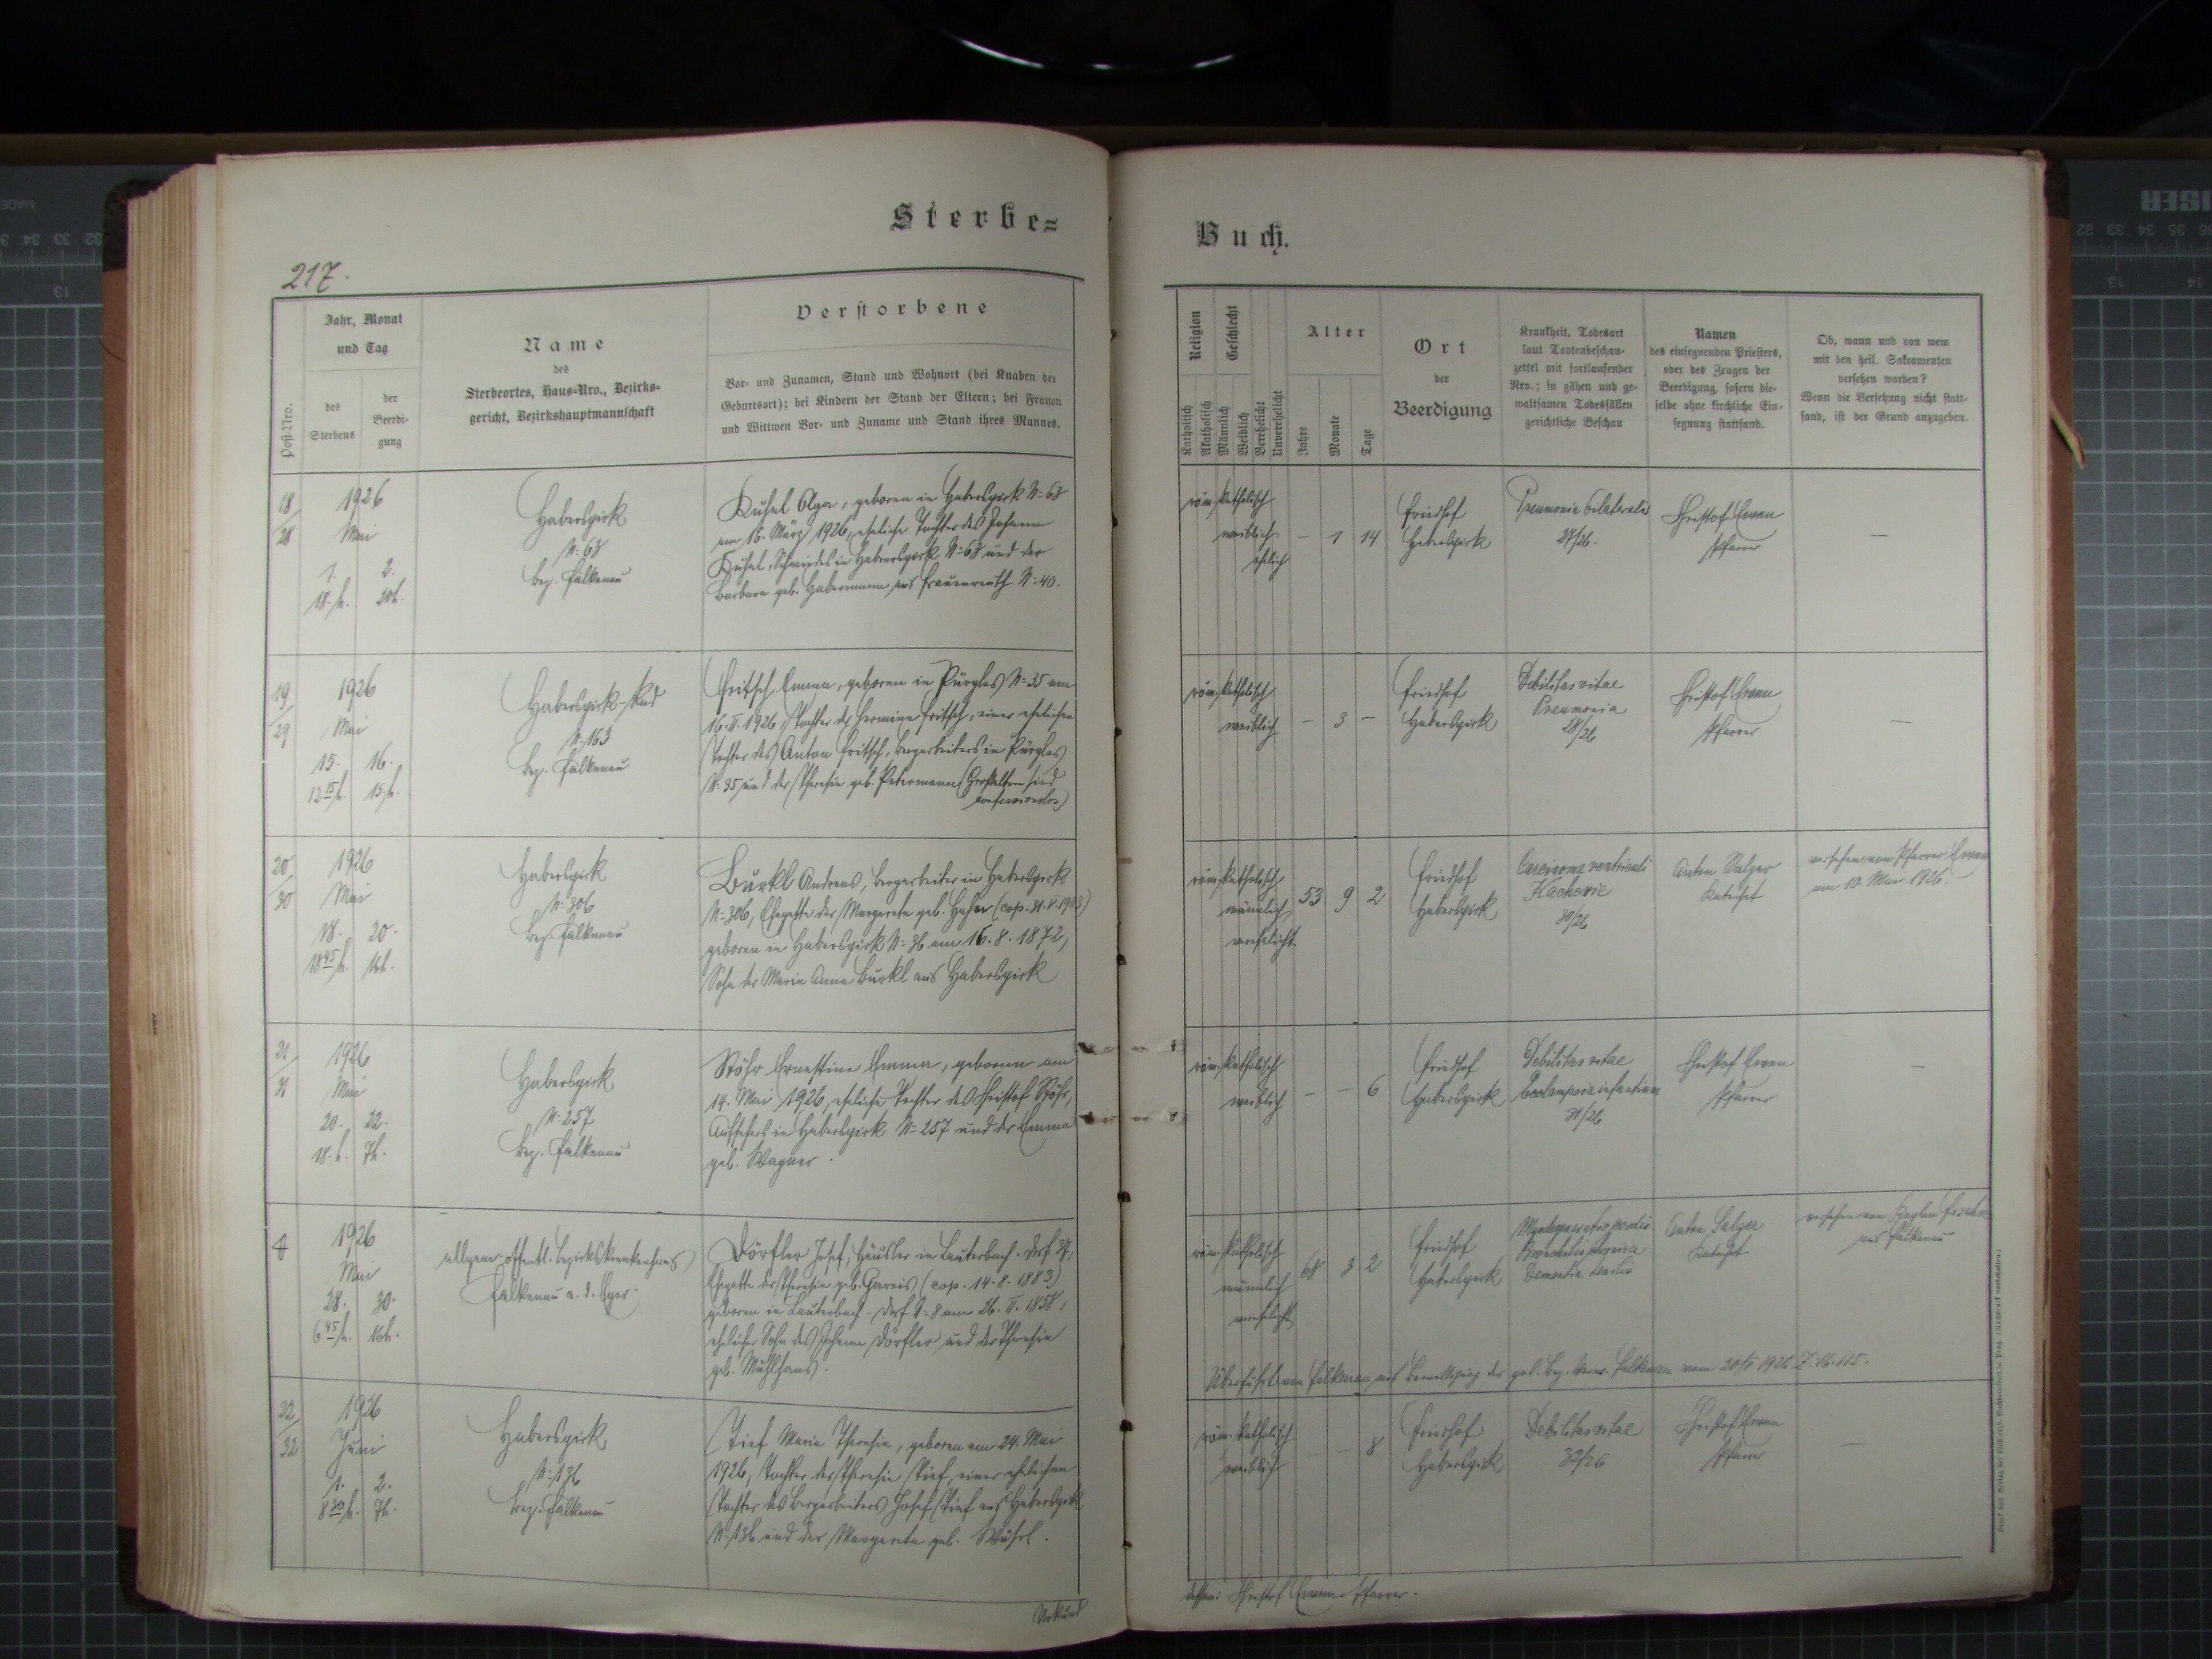 Sterbe=
Buch.
217.
Post-Nro.
Jahr, Monat
und Tag
des
Sterbens
der
Beerdi-
gung
Name
des
Sterbeortes, Haus-Nro., Bezirks-
gericht, Bezirkshauptmannschaft
Verstorbene
Vor- und Zunamen, Stand und Wohnort (bei Knaben der
Geburtsort); bei Kindern der Stand der Eltern; bei Frauen
und Wittwen Vor- und Zuname und Stand ihres Mannes.
Religion
Katholisch
Akatholisch
Geschlecht
Männlich
Weiblich
Verehelicht
Unverehelicht
Alter
Jahre
Monate
Tage
Ort
der
Beerdigung
Krankheit, Todesart
laut Todtenbeschau-
zettel mit fortlaufender
Nro.; in gähen und ge-
waltsamen Todesfällen
gerichtliche Beschau
Namen
des einsegnenden Priesters,
oder des Zeugen der
Beerdigung, sofern die-
selbe ohne kirchliche Ein-
segnung stattfand.
Ob, wann und von wem
mit den heil. Sakramenten
versehen worden?
Wenn die Versehung nicht statt-
fand, ist der Grund anzugeben.
18/28
1926
Mai
1. 2.
18.h.
Haberspirk
N: 63
bez. Falkenau
Kühnl Olga, geboren in Haberspirk N: 63
am 16. März 1926, eheliche Tochter des Johann
Kühnl, Schmiedes in Haberspirk N: 63 und der
Barbara geb. Habermann aus Frauenreuth N: 40.
röm. katholisch
weiblich
ehelich
– 1 14
Friedhof
Haberspirk
Pneumonia bilateralis
27/26.
Christof
Pfarrer
—
19/29
1926
Mai
15. 16.
12 15/h. 15 h.
Haberspirk
N: 163
bez. Falkenau
Fritsch Emma, geboren in Pürgles N: 35 am
16. II. 1926, Tochter der Hermine Fritsch, einer ehelichen
Tochter des Anton Fritsch, Bergarbeiters in Pürgles
N: 35 und der Theresia geb. Petermann (Großeltern sind
confessionslos)
röm. katholisch
weiblich
– 3 –
Friedhof
Haberspirk
Debilitas vitae
Pneumonia
28/26
Christof
Pfarrer
—
20/30
1926
Mai
18. 20.
18 45/h. 16h.
Haberspirk
N: 306
bez. Falkenau
Burkl Andreas, Bergarbeiter in Haberspirk
N: 306, Ehegatte der Margareta geb. Hahn
geboren in Haberspirk N: 36 am 16. 8. 1872,
Sohn der Maria Anna Burkl aus Haberspirk
röm. katholisch
männlich
verehelicht
53 9 2
Friedhof
Haberspirk
Carcinoma ventriculi
Kachexie
30/26
Anton Salzer
Katechet
versehen von Pfarrer
am 10. Mai 1926.
21/31
1926
Mai
20. 22.
18. h. 7h.
Haberspirk
N: 257
bez. Falkenau
Stöhr Ernestine Emma, geboren am
14. Mai 1926, eheliche Tochter des Christof Stöhr,
Aufsehers in Haberspirk N: 257 und der Emma
geb. Wagner.
röm. katholisch
weiblich
– – 6
Friedhof
Haberspirk
Debilitas vitae
31/26
Christof
Pfarrer
—
1926
Mai
28. 30.
6 45/h. 16h.
allgem. öffentl. Bezirkskrankenhaus
Falkenau a. d. Eger
Dörfler Josef, Häusler in Lauterbach-Dorf 37,
Ehegatte der Theresia geb. Gareis, (cop. 14. 8. 1883)
geboren in Lauterbach-Dorf N: 8 am 26. II. 1858,
ehelicher Sohn des Johann Dörfler und der Theresia
geb. Mühlhans.
röm. katholisch
männlich
verehelicht
68 3 2
Friedhof
Haberspirk
Myodegeneratio cordis
Bronchitis chronica
Dementia senilis
Anton Salzer
Katechet
versehen von Kaplan
aus Falkenau
Überführt von Falkenau mit Bewilligung der pol. Bez. Verw. Falkenau
22/32
1926
Juni
1. 2.
8 30/h. 7h.
Haberspirk
N: 136
bez. Falkenau
Tief Maria Theresia, geboren am 24. Mai
1926, Tochter der Theresia Tief, einer ehelichen
Tochter des Bergarbeiters Josef Tief aus Haberspirk
N: 136 und der Margareta geb.
röm. katholisch
weiblich
– – 8
Friedhof
Haberspirk
Debilitas vitae
32/26
Christof
Pfarrer
—
Urkund
dessen: Christof Pfarrer.